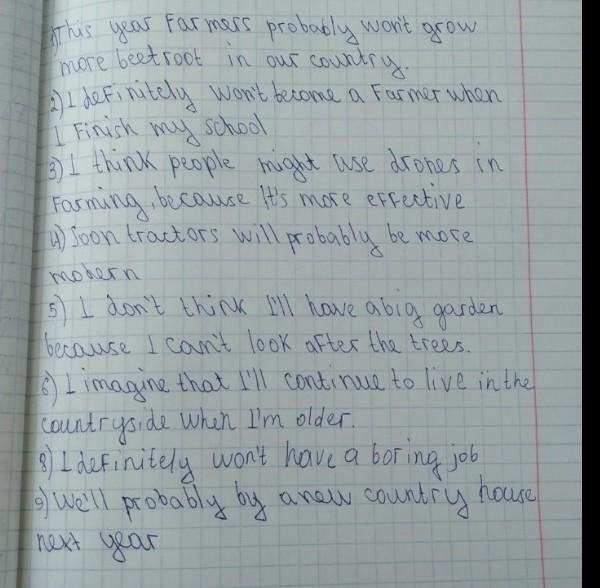 1) This year Farmers probably won't grow
more beetroot in our country.
2) I deFinitely won't become a Farmer when
I Finish my school
3) I think people might use drones in
Farming, because It's more eFFective
4) Soon tractors will probably be more
modern
5) I don't think I'll have a big garden
because I can't look aFter the trees.
6) I imagine that I'll continue to live in the
countryside when I'm older.
8) I deFinitely won't have a boring job
9) We'll probably by a new country house
next year